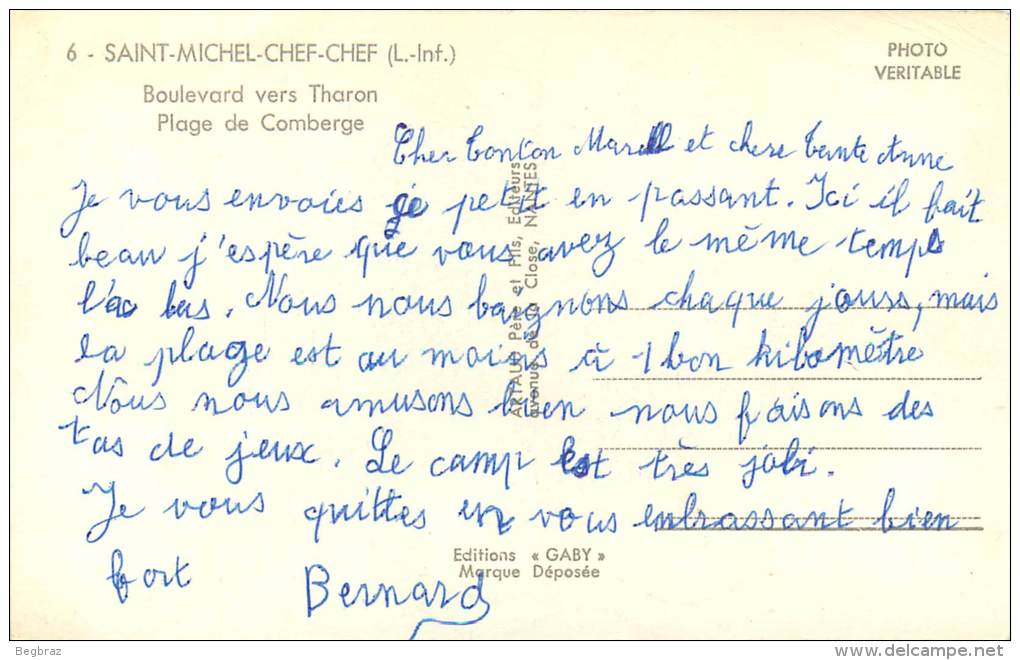 6 - SAINT-MICHEL-CHEF-CHEF (L.-Inf.)
Boulevard vers Tharon
Plage de Comberge
PHOTO
VERITABLE
Cher Tonton et chere tante Anne
Je vous envoies ge petit en passant. Ici il fait
beau j'espère que vous avez le même temps
l'a bas. Nous nous baignons chaque jours, mais
la plage est au moins à 1 bon kilomètre
Nous nous amusons bien nous faisons des
tas de jeux. Le camp est très joli.
Je vous quittes en vous enbrassant bien
fort Bernard
ARTAUD Père et Fils, Editeurs
avenue de la Close, NANTES
Editions « GABY »
Marque Déposée
Begbraz
www.delcampe.net